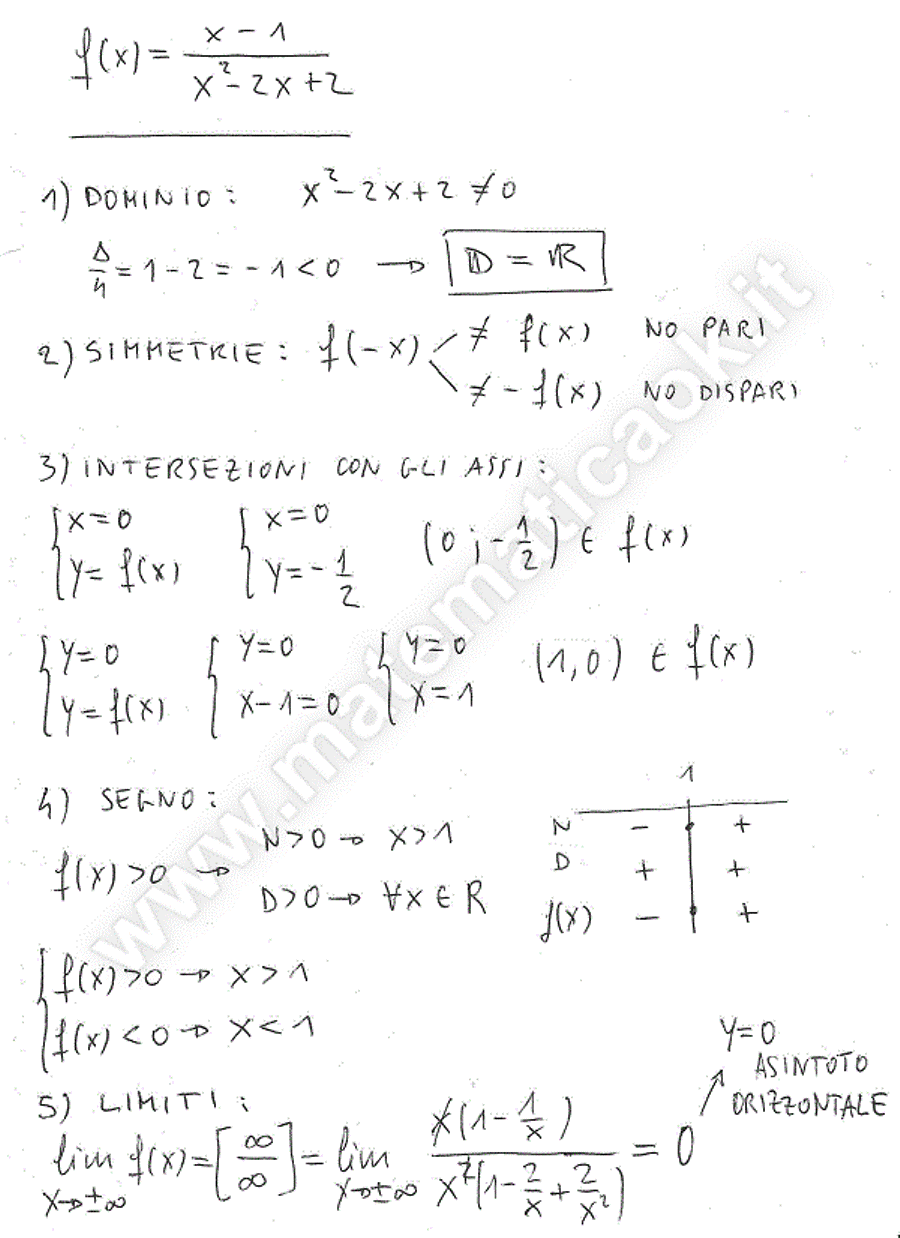 f(x) = (x - 1)/(x² - 2x + 2)
1) DOMINIO : x² - 2x + 2 ≠ 0
Δ/4 = 1 - 2 = - 1 < 0 → D = ℝ
2) SIMMETRIE : f(-x) ≠ f(x) NO PARI
≠ - f(x) NO DISPARI
3) INTERSEZIONI CON GLI ASSI :
{ x = 0 { x = 0 (0 ; - 1/2) ∈ f(x)
{ y = f(x) { y = - 1/2
{ y = 0 { y = 0 { y = 0 (1, 0) ∈ f(x)
{ y = f(x) { x - 1 = 0 { x = 1
4) SEGNO :
f(x) > 0 → N > 0 → x > 1
D > 0 → ∀x ∈ R
1
N - +
D + +
f(x) - +
{ f(x) > 0 → x > 1
{ f(x) < 0 → x < 1
5) LIMITI :
lim x→±∞ f(x) = [∞/∞] = lim x→±∞ x(1 - 1/x)/x²(1 - 2/x + 2/x²) = 0
y = 0
ASINTOTO
ORIZZONTALE
www.matematicaok.it